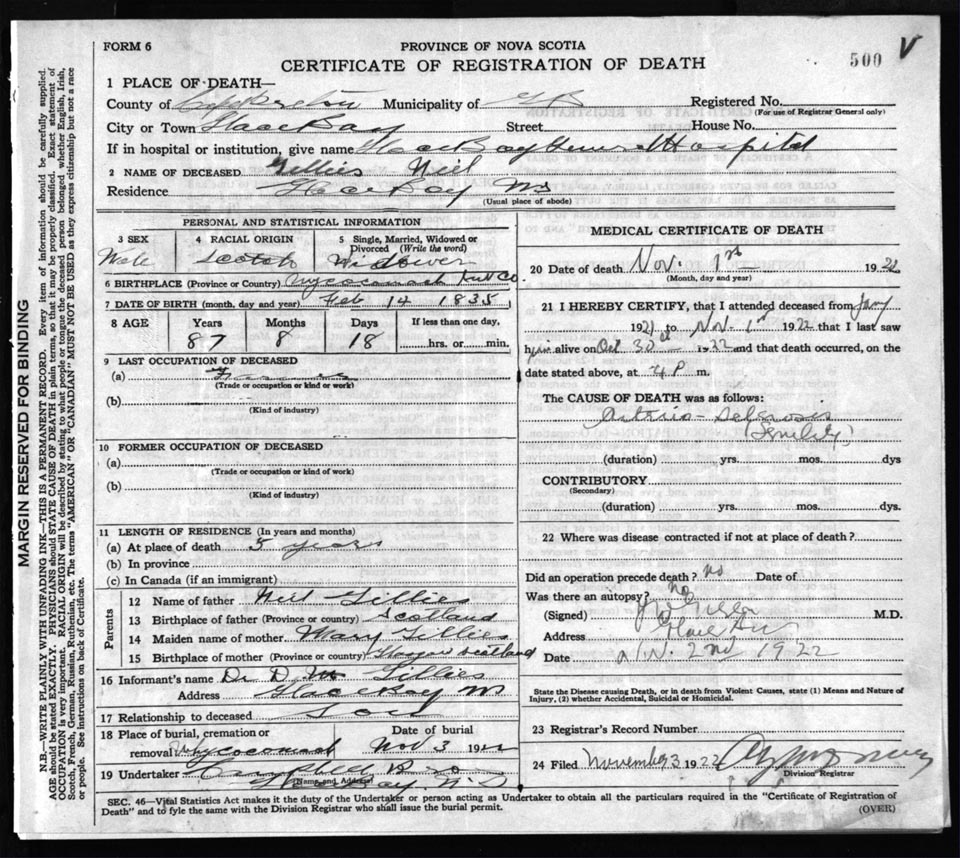 FORM 6
PROVINCE OF NOVA SCOTIA
500 V
CERTIFICATE OF REGISTRATION OF DEATH
1 PLACE OF DEATH—
County of Cape Breton Municipality of Registered No.
(For use of Registrar General only)
City or Town Glace Bay Street House No.
If in hospital or institution, give name Glace Bay General Hospital
2 NAME OF DECEASED Gillies Niel
Residence Glace Bay N S
(Usual place of abode)
PERSONAL AND STATISTICAL INFORMATION
3 SEX 4 RACIAL ORIGIN 5 Single, Married, Widowed or Divorced (Write the word)
Male Scotch Widower
6 BIRTHPLACE (Province or Country) Whycocomagh Inv Co
7 DATE OF BIRTH (month, day and year) Feb 14 1835
8 AGE Years Months Days If less than one day,
87 8 18 hrs. or min.
9 LAST OCCUPATION OF DECEASED
(a)
(Trade or occupation or kind of work)
(b)
(Kind of industry)
10 FORMER OCCUPATION OF DECEASED
(a)
(Trade or occupation or kind of work)
(b)
(Kind of industry)
11 LENGTH OF RESIDENCE (In years and months)
(a) At place of death 5 years
(b) In province
(c) In Canada (if an immigrant)
Parents
12 Name of father Neil Gillies
13 Birthplace of father (Province or country) Scotland
14 Maiden name of mother Mary Gillies
15 Birthplace of mother (Province or country) Scotland
16 Informant's name Dr D Gillies
Address Glace Bay N S
17 Relationship to deceased Son
18 Place of burial, cremation or Date of burial
removal Whycocomagh Nov 3 1922
19 Undertaker Campbell Bro
(Name and Address)
Glace Bay N S
MEDICAL CERTIFICATE OF DEATH
20 Date of death Nov. 1st 1922
(Month, day and year)
21 I HEREBY CERTIFY, that I attended deceased from Jany
1921 to Nov. 1st 1922 that I last saw
him alive on Oct 30th 1922 and that death occurred, on the
date stated above, at 4 P m.
The CAUSE OF DEATH was as follows:
Arterio-Sclerosis
(Senility)
(duration) yrs. mos. dys
CONTRIBUTORY
(Secondary)
(duration) yrs. mos. dys.
22 Where was disease contracted if not at place of death?
Did an operation precede death? no Date of
Was there an autopsy? no
(Signed) M.D.
Address
Date Nov. 2nd 1922
State the Disease causing Death, or in death from Violent Causes, state (1) Means and Nature of
Injury, (2) whether Accidental, Suicidal or Homicidal.
23 Registrar's Record Number
24 Filed November 3 1922
Division Registrar
SEC. 46—Vital Statistics Act makes it the duty of the Undertaker or person acting as Undertaker to obtain all the particulars required in the "Certificate of Registration of
Death" and to fyle the same with the Division Registrar who shall issue the burial permit.
(OVER)
MARGIN RESERVED FOR BINDING
N.B.—WRITE PLAINLY WITH UNFADING INK—THIS IS A PERMANENT RECORD. Every item of information should be carefully supplied.
AGE should be stated EXACTLY. PHYSICIANS should STATE CAUSE OF DEATH in plain terms, so that it may be properly classified. Exact statement of
OCCUPATION is very important. RACIAL ORIGIN will be described by stating to what people or tongue the deceased person belonged whether English, Irish,
Scotch, French, German, Russian, Ruthenian, etc. The terms "AMERICAN" OR "CANADIAN MUST NOT BE USED as they express citizenship but not a race
or people. See instructions on back of Certificate.